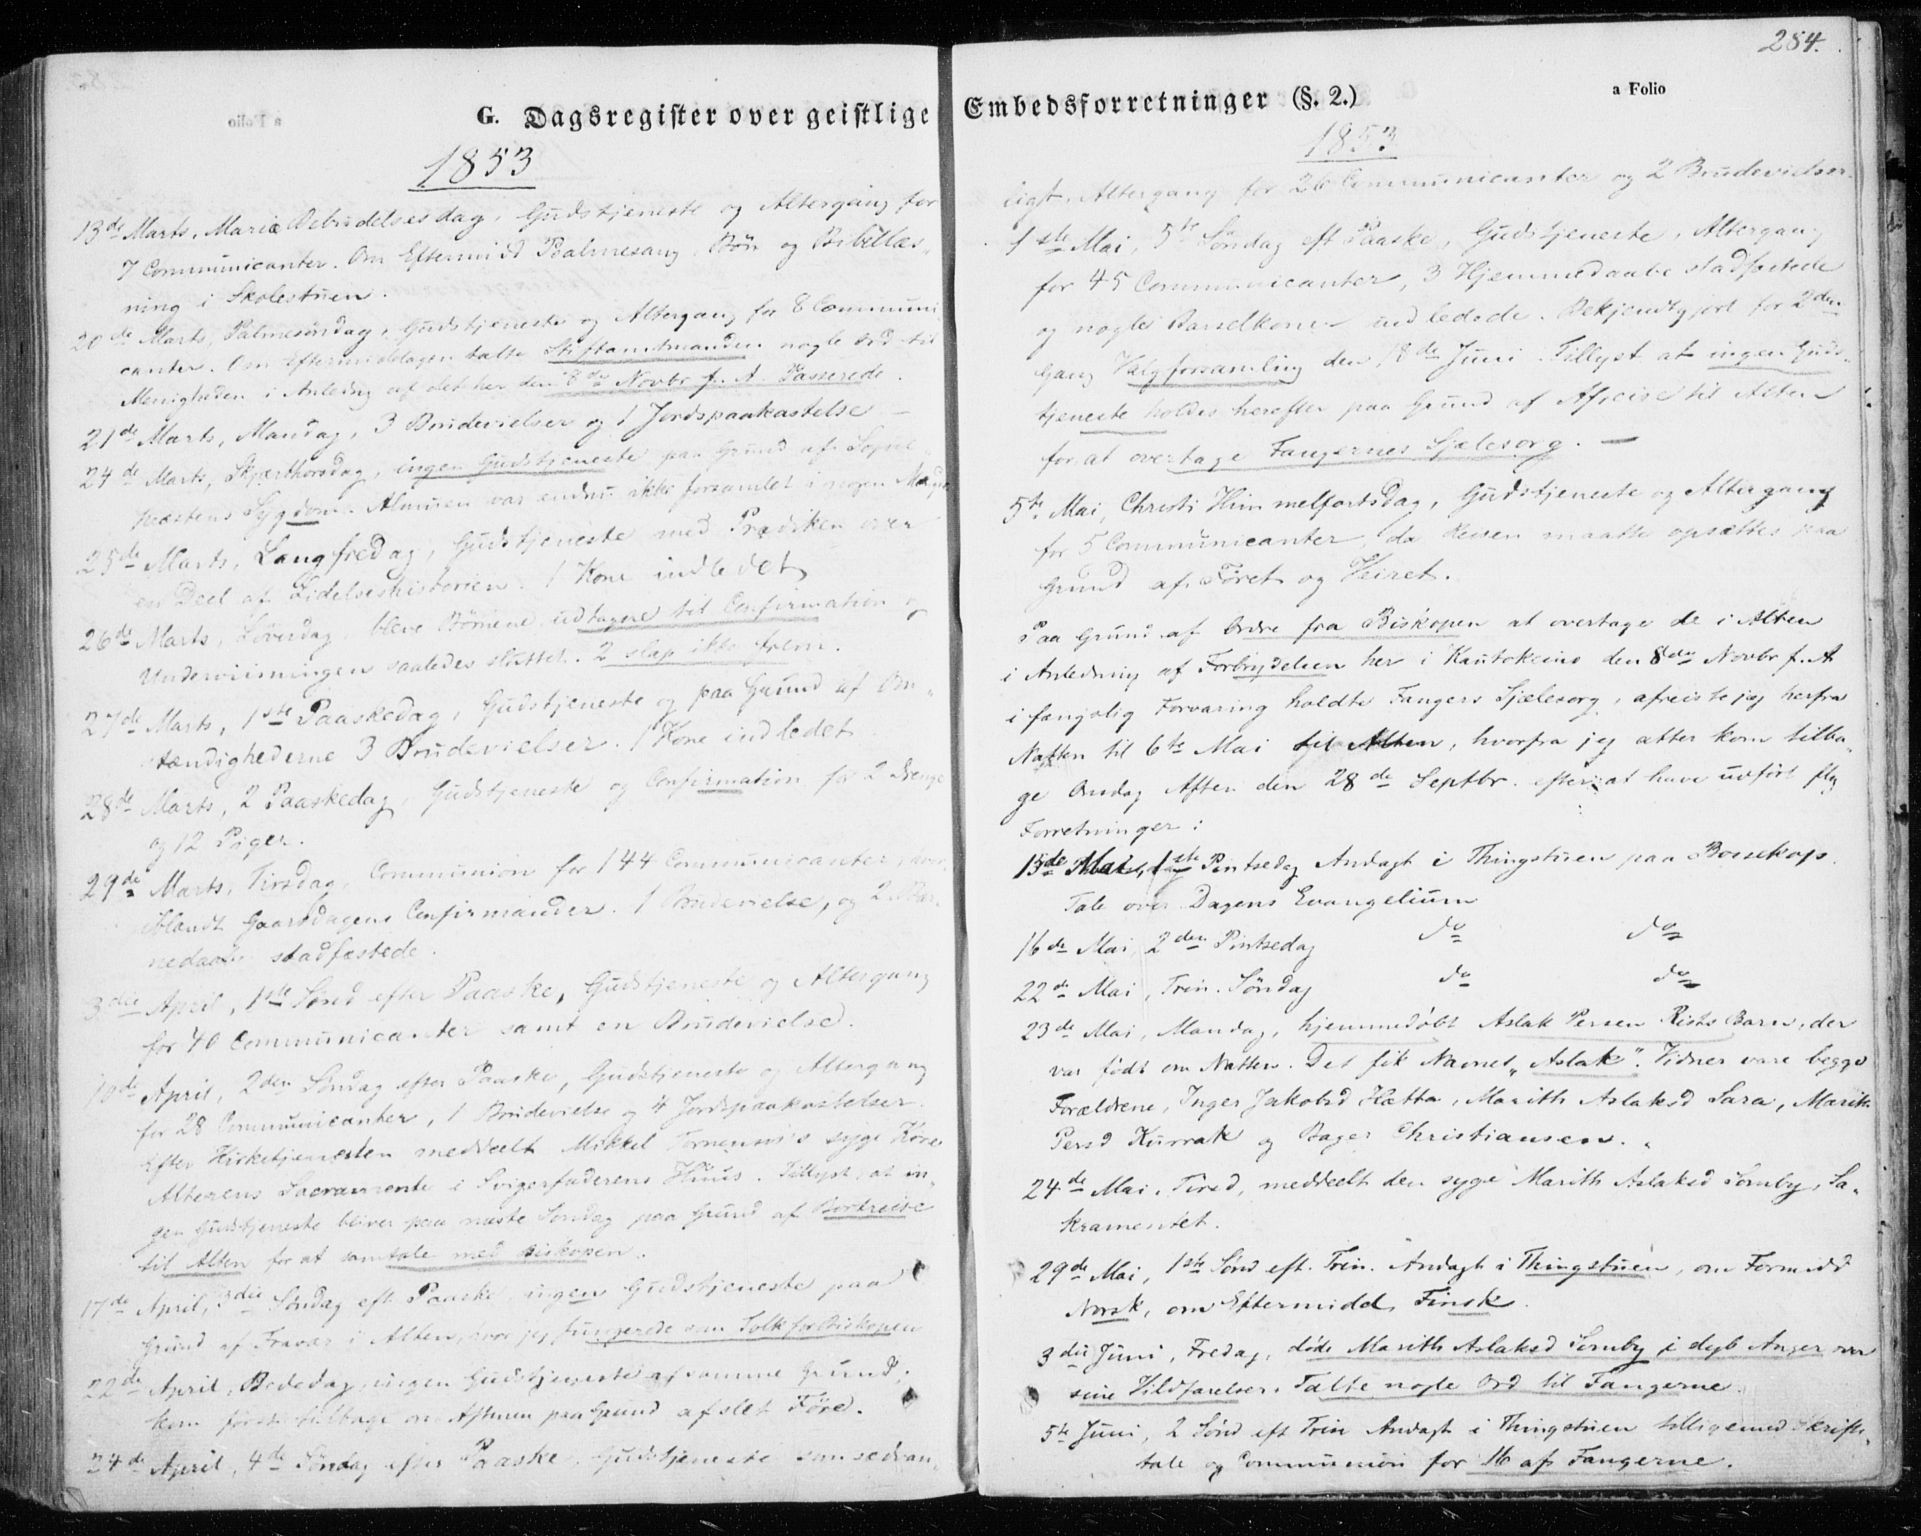 G. Dagsregister over geistlige
1853
13de Marts, Mariæ Bebudelsesdag, Gudstjeneste og Altergang for
7 Communicanter. Om Eftermidd Psalmesang, Bön og Bibellæs-
ning i Skolestuen.
20de Marts, Palmesöndag, Gudstjeneste og Altergang for 8 Communi-
canter. Om Eftermiddagen talte Stiftamtmanden nogle Ord til
Menigheden i Anledng af det her den 8de Novbr f. A. Passerede.
21de Marts, Mandag, 3 Brudevielser og 1 Jordspaakastelse –
24de Marts, Skjærthorsdag, ingen Gudstjeneste paa Grund af Sogne-
præstens Sygdom. Almuen var endnu ikke forsamlet i nogen
25de Marts, Langfredag, Gudstjeneste med Prædiken over
en Deel af Lidelseshistorien. 1 Kone indledet
26de Marts, Löverdag bleve Börnene udtagne til Confirmation og
Underviisningen saaledes sluttet. 2 slap ikke frem.
27de Marts, 1ste Paaskedag, Gudstjeneste og paa Grund af Om-
stændighederne 3 Brudevielser. 1 Kone indledet.
28de Marts, 2 Paaskedag, Gudstjeneste og Confirmation for 2 Drenge
og 12 Piger.
29de Marts, Tirsdag, Communion for 144 Communicanter,
iblandt Gaarsdagens Confirmander. 1 Brudevielse, og 2
stadfæstede.
3die April, 1ste Sönd efter Paaske, Gudstjeneste og Altergang
for 40 Communicanter samt en Brudevielse.
10de April, 2den Söndag efter Paaske, Gudstjeneste og Altergang
for 28 Communicanter, 1 Brudevielse og 4 Jordspaakastelser.
Efter Kirketjenesten meddeelt Mikkel Tornensis's syge Kone
Alterens Sacramente i Svigerfaderens Huus. Tillyst, at in-
gen Gudstjeneste bliver paa næste Söndag paa Grund af Bortreise
til Alten for at samtale med Biskopen.
17de April, 3die Söndag eft Paaske ingen Gudstjeneste paa
Grund af Fravær i Alten, hvor jeg fungerede som Tolk for Biskopen
22de April, Bededag, ingen Gudstjeneste af samme Grund;
kom först tilbage om Aftenen paa Grund af slet Före.
24de April, 4de Söndag efter Paaske, Gudstjeneste som sædvan-
284.
Embedsforretninger (§. 2.)
a Folio
1853
ligt, Altergang for 26 Communicanter og 2 Brudevielser.
1ste Mai, 5te Söndag eft Paaske, Gudstjeneste, Altergang
for 45 Communicanter, 3 Hjemmedaabe stadfæstede
og nogle Barselkoner indledede. Bekjendtgjort for 2den
Gang Valgforsamling den 18de Juni. Tillyst at ingen Guds-
tjeneste holdes herefter paa Grund af Afreise til Alten
for at overtage Fangernes Sjælesorg. –
5te Mai, Christi Himmelfartsdag, Gudstjeneste og Altergang
for 5 Communicanter, da Reisen maatte opsættes paa
Grund af Föret og Veiret.
Paa Grund af Ordre fra Biskopen at overtage de i Alten
i Anledning af Forbrydelsen her i Kautokeino den 8de Novbr f. A
i fængslig Forvaring holdte Fangers Sjælesorg, afreiste jeg herfra
Natten til 6te Mai til Alten, hvorfra jeg atter kom tilba-
ge Onsdag Aften den 28de Septbr. efter at have udfört flg
Forretninger:
15de Mai, 1ste Pintsedag Andagt i Thingstuen paa Bossekop.
Tale over Dagens Evangelium
16de Mai, 2den Pintsedag do do
22de Mai, Trin. Söndag do do
23de Mai, Mandag, hjemmedöbt Aslak Persen Rists Barn, der
var födt om Natten. Det fik Navnet „Aslak". Vidner vare begge
Forældrene, Inger Jakobsd Hætta, Marith Aslaksd Sara, Marith
Persd Kurrak og Bager Christiansen.
24de Mai, Tirsd, meddeelt den syge Marith Aslaksd Somby, Sa-
kramentet.
29de Mai, 1ste Sönd eft. Trin. Andagt i Thingstuen, om Formidd
Norsk, om Eftermidd, Finsk.
3die Juni, Fredag, döde Marith Aslaksd Somby i dyb Anger over
sine Vildfarelser. Talte nogle Ord til Fangerne.
5te Juni, 2 Sönd eft Trin Andagt i Thingstuen tilligemed Skrifte-
tale og Communion for 16 af Fangerne.